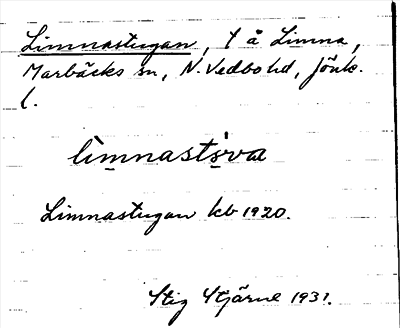 Limnastugan, t å Limna,
Marbäcks sn, N. Vedbo hd, Jönk.
l.
limnastọva
Limnastugan kb 1920.
Stig Stjärne 1931.